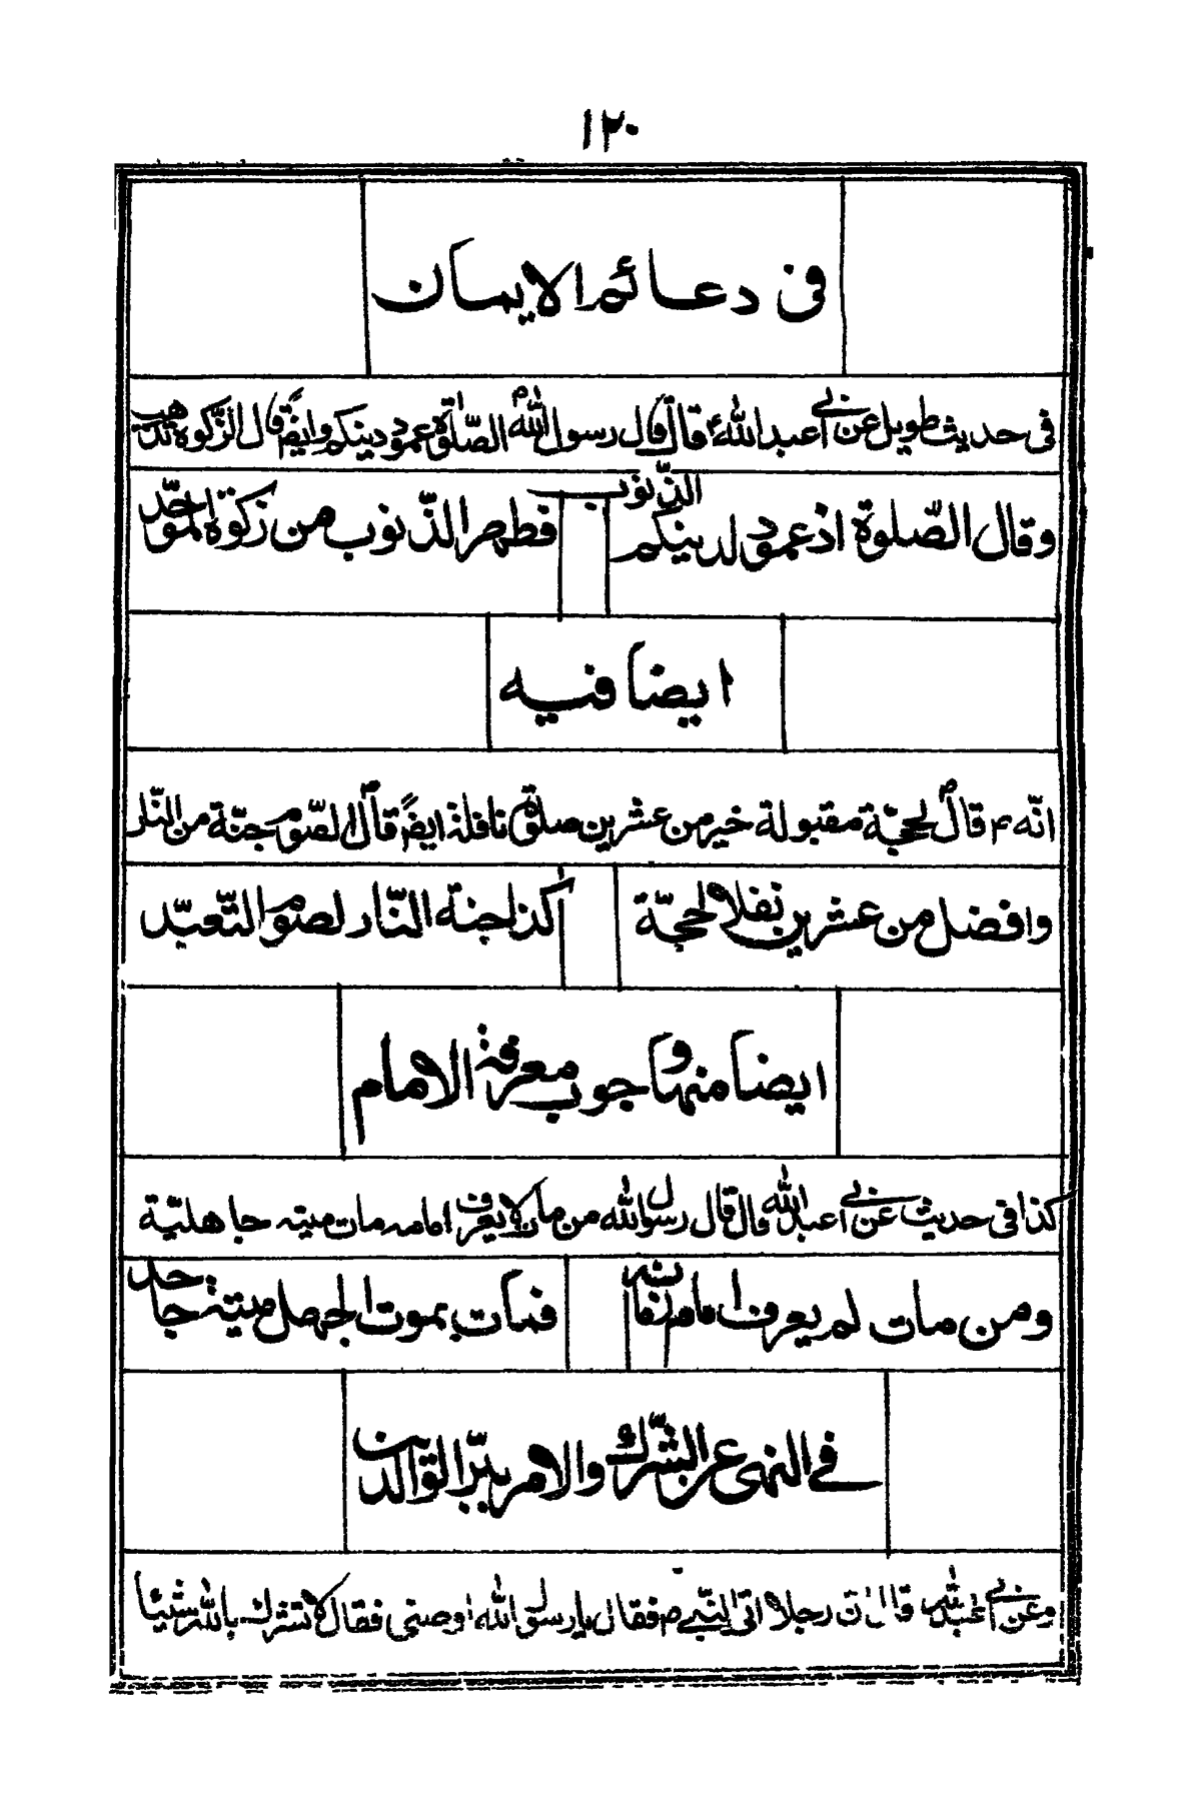 ١٢٠
فى دعائم الايمان
فى حديث طويل عن أبي عبد الله ع قال قال رسول الله ص الصّلوة عمود دينكم وايضً قال الزّكوة تذهب
الذّنوب
وقال الصّلوة اذ عمود لدينكم فطهر الذّنوب من زكوة
ايضا فيه
انّه ع قال لحجّة مقبولة خير من عشرين صلوة نافلة ايضً قال الصّوم جنّة من النّار
وافضل من عشرين نفلا لحجّة كذا جنة النّار لصوم التّعبّد
ايضا منها وجوب معرفة الامام
كذا فى حديث عن أبي عبد الله قال قال رسول الله من مات لا يعرف امامه مات ميتة جاهليّة
ومن مات لم يعرف امام فمات بموت الجهل ميتة جاحد
في النهى عن الشّرك والامر ببرّ الوالدين
وعن أبي عبد الله قال انّ رجلا اتى النّبي ص فقال يا رسول الله اوصنى فقال لا تشرك بالله شيئا